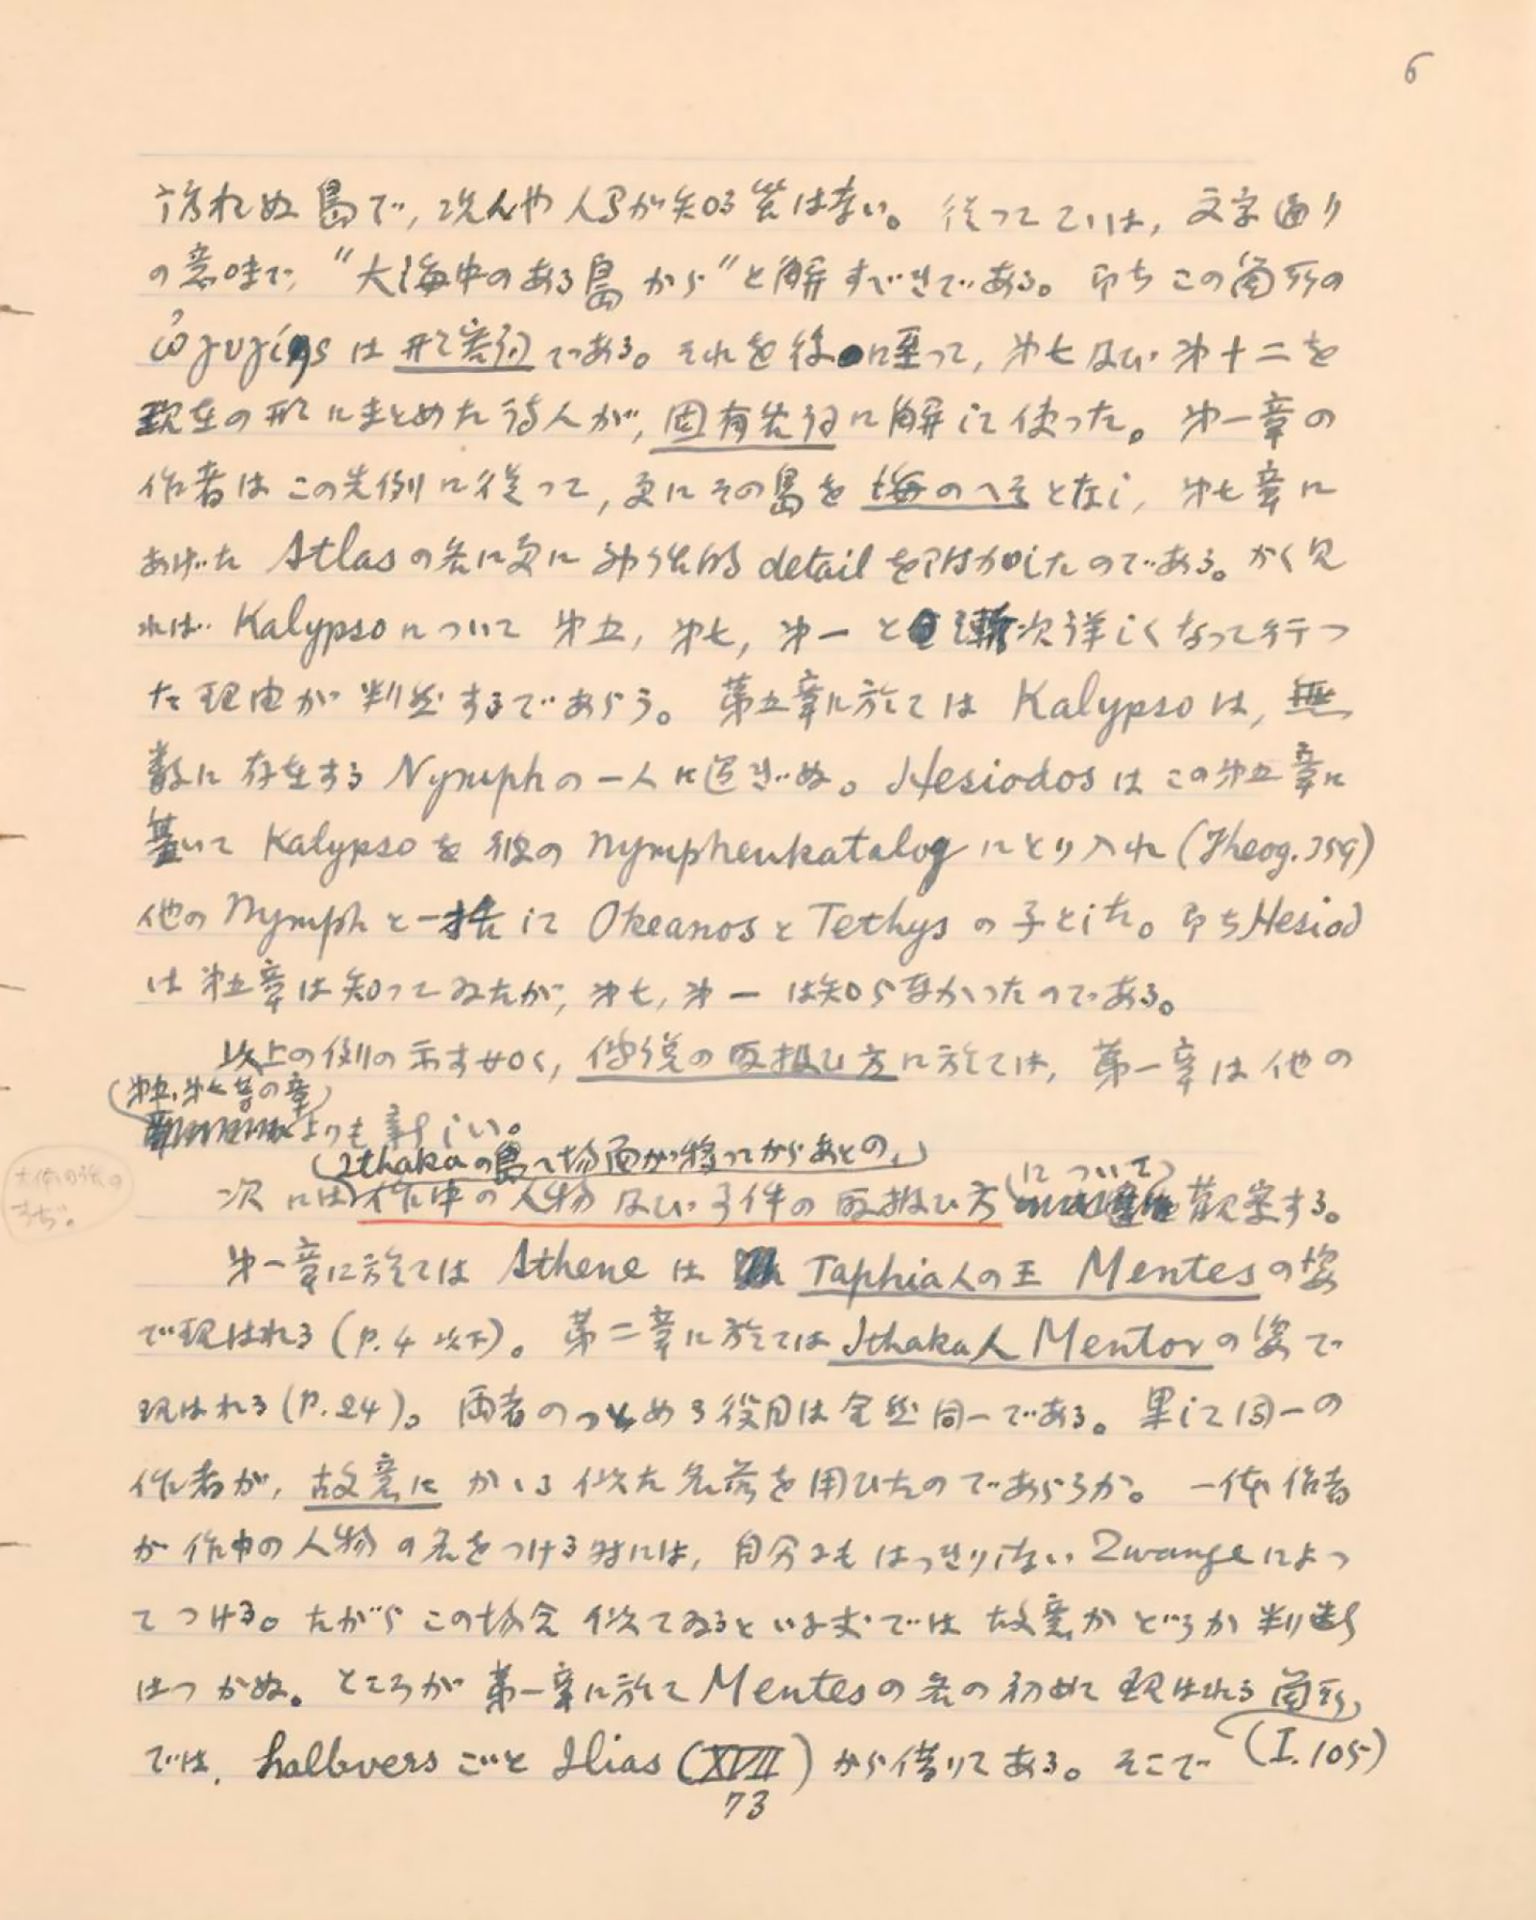 6
訪れぬ島で, 況んや人間が知る筈は無い。従ってこゝは, 文字通り
の意味で, "大海中のある島から"と解すべきである。即ちこの箇所の
ὠγυγίης は形容詞である。それを後に至って, 第七及び第十二を
現在の形にまとめた詩人が, 固有名詞に解して使った。第一章の
作者はこの先例に従って, 更にその島を海のへそとなし, 第七章に
あげた Atlasの名に更に神話的 detail を附加したのである。かく見
れば Kalypsoについて 第五, 第七, 第一と漸次詳しくなって行つ
た理由が判然するであらう。第五章に於ては Kalypsoは, 無
数に存在する Nymphの一人に過ぎぬ。Hesiodosはこの第五章に
基いて Kalypsoを彼の Nymphenkatalogにとり入れ (Theog. 359)
他のNymphと一括して Okeanosと Tethysの子とした。即ちHesiod
は第五章は知ってゐたが, 第七, 第一は知らなかったのである。
以上の例の示す如く, 伝説の取扱ひ方に於ては, 第一章は他の
(第五, 第七等の章)
よりも新しい。
(Ithakaの島へ場面が移ってからあとの,)
次には作中の人物及び事件の取扱ひ方(について)観察する。
第一章に於ては Athene は Taphia人の王 Mentesの姿
で現はれる (p. 4 以下)。第二章に於ては Ithaka人 Mentorの姿で
現はれる (p. 24)。両者のつとめる役目は全然同一である。果して同一の
作者が, 故意に かゝる似た名前を用ひたのであらうか。一体作者
が作中の人物の名をつける時には, 自分でもはっきりしない Zwangeによっ
てつける。だから この場合似てゐるといふ丈では故意かどうか判断
はつかぬ。ところが第一章に於て Mentesの名の初めて現はれる箇所
(I. 105)
では, halbversごと Ilias (XVII
73) から借りてある。そこで